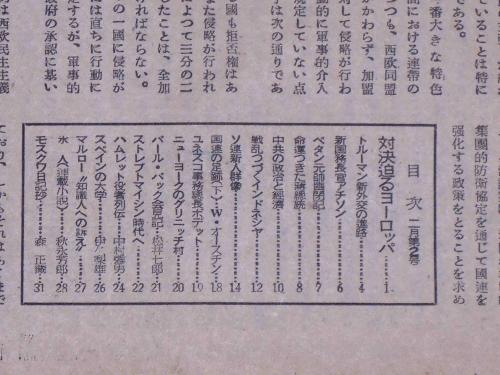 集團的防衛協定を通じて連
強化する政策をとることを求め
番大きな特色
における連帶の
つつも、西歐同盟
かかわらず、加盟
對して侵略が行わ
動的に軍事的介入
規定していない点
学は次の通りであ
國も拒否權はあ
また侵略が行われ
よつて三分の二
したことは、全加
の一國に侵略が
ければならない。
は直ちに行動に
定するが、軍事的
政府の承認に基い
目次 二月第2号
対決迫るヨーロッパ……1
トルーマン新外交の進路……4
新国務長官アチソン……6
ペタン元帥幽閉記……7
命運つきた蔣總統……8
中共の政治と經濟……10
戰乱つづくインドネシヤ……12
ソ連新人群像……14
国連の足跡(下)・W・オースチン……18
ユネスコ事務総長ボデット……19
ニューヨークのグリニッチ村……20
パール・バック会見記……石井七郎……21
ストレプトマイシン時代へ……22
ハムレット役者列伝……中村雅男……24
スペインの大学……伊久梨雄……26
マルロー"知識人への訴え"……27
氷 A(連載小説)……秋永芳郎……28
モスクワ日記抄……森 正藏……31